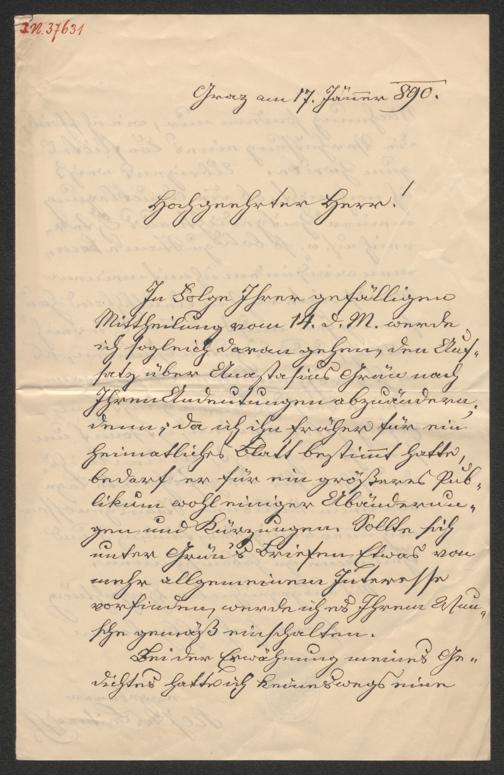 IN. 37631
Graz am 17. Jänner 890.
Hochgeehrter Herr!
In Folge Ihrer gefälligen
Mittheilung vom 14. d. M. werde
ich sogleich daran gehen, den Auf-
satz über Anastasius Grün nach
Ihren Andeutungen abzuändern,
denn, da ich ihn früher für ein
heimatliches Blatt bestimmt hatte,
bedarf er für ein größeres Pub-
likum wohl einiger Abänderun-
gen und Kürzungen. Sollte sich
unter Grün's Briefen Etwas von
mehr allgemeinem Interesse
vorfinden, werde ich es Ihrem Wun-
sche gemäß einschalten.
Bei der Erwähnung meines Ge-
dichtes hatte ich keineswegs eine